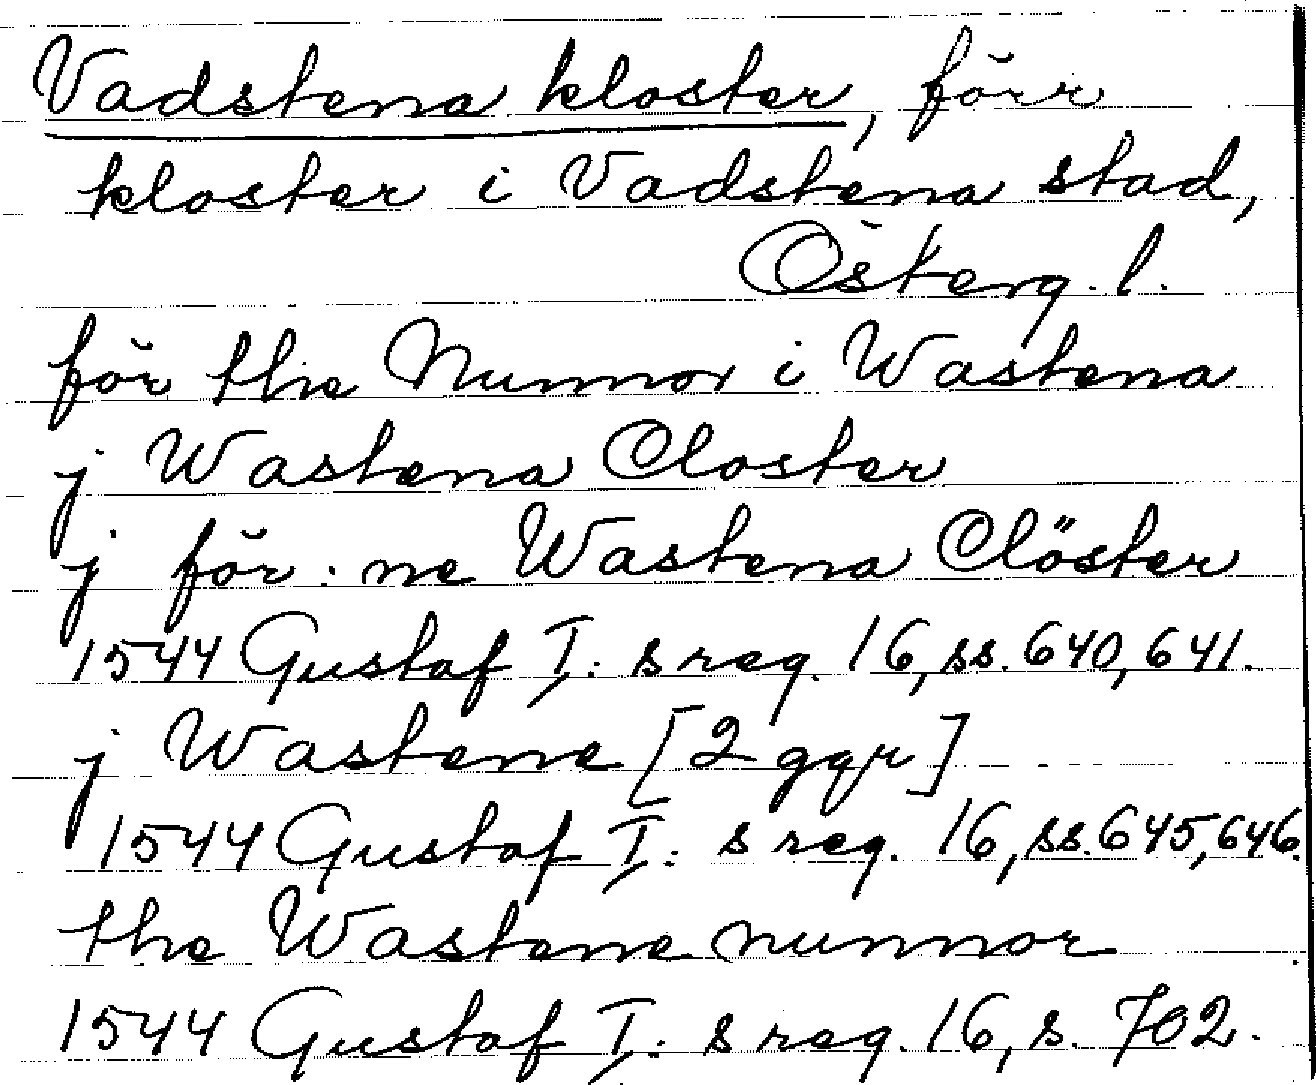 Vadstena kloster, förr
kloster i Vadstena stad,
Österg. l.
för the Nunnor i Wastena
j Wastena Closter
j för: ne Wastena Clöster
1544 Gustaf I: s reg. 16, ss. 640, 641.
j Wastene [2 ggr]
1544 Gustaf I: s reg. 16, ss. 645, 646.
the Wastene nunnor
1544 Gustaf I: s reg. 16, s. 702.